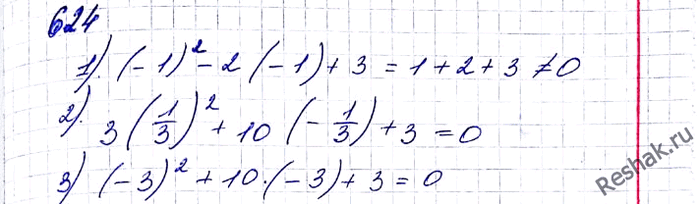 624
1). (-1)² - 2(-1) + 3 = 1 + 2 + 3 ≠ 0
2). 3(1/3)² + 10(-1/3) + 3 = 0
3) (-3)² + 10·(-3) + 3 = 0
Reshak.ru